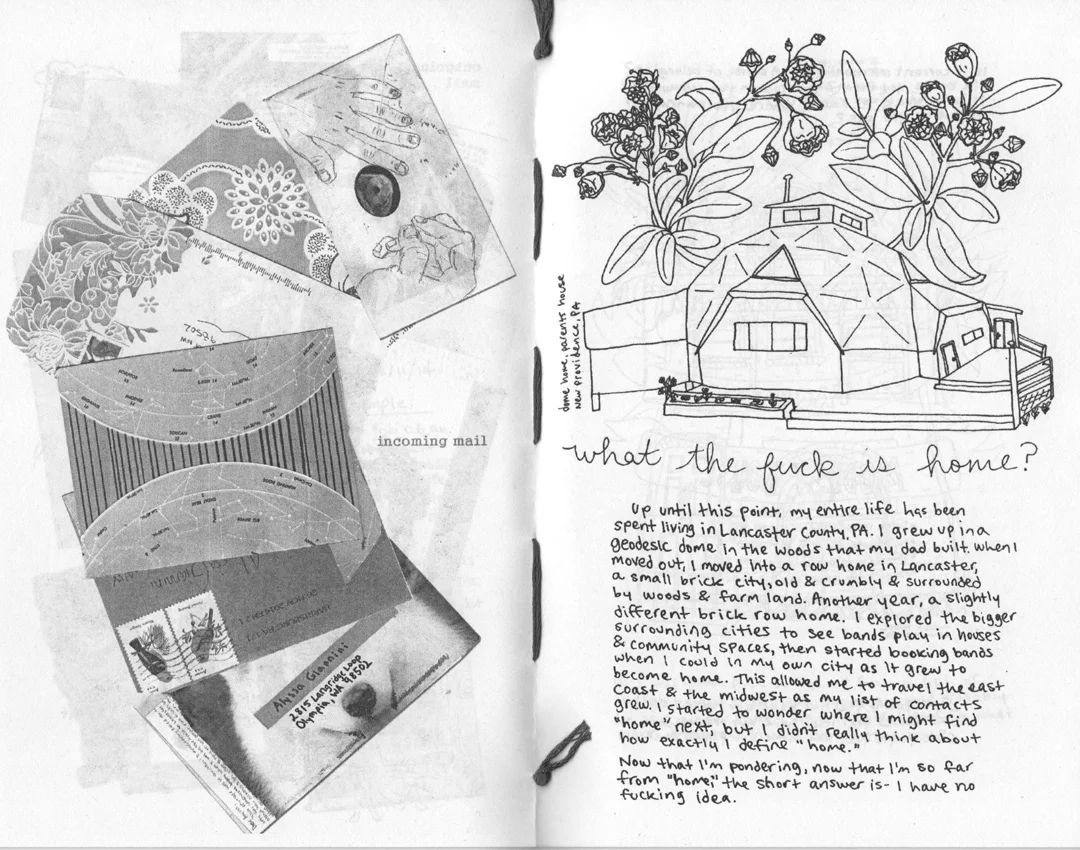 98502
incoming mail
Alyssa Giannini
2815 Langridge Loop
Olympia, WA 98502
dome home, parents house
New Providence, PA
what the fuck is home?
Up until this point, my entire life has been
spent living in Lancaster County, PA. I grew up in a
geodesic dome in the woods that my dad built. When I
moved out, I moved into a row home in Lancaster,
a small brick city, old & crumbly & surrounded
by woods & farm land. Another year, a slightly
different brick row home. I explored the bigger
surrounding cities to see bands play in houses
& community spaces, then started booking bands
when I could in my own city as it grew to
become home. This allowed me to travel the east
coast & the midwest as my list of contacts
grew. I started to wonder where I might find
"home" next, but I didn't really think about
how exactly I define "home."
Now that I'm pondering, now that I'm so far
from "home," the short answer is- I have no
fucking idea.